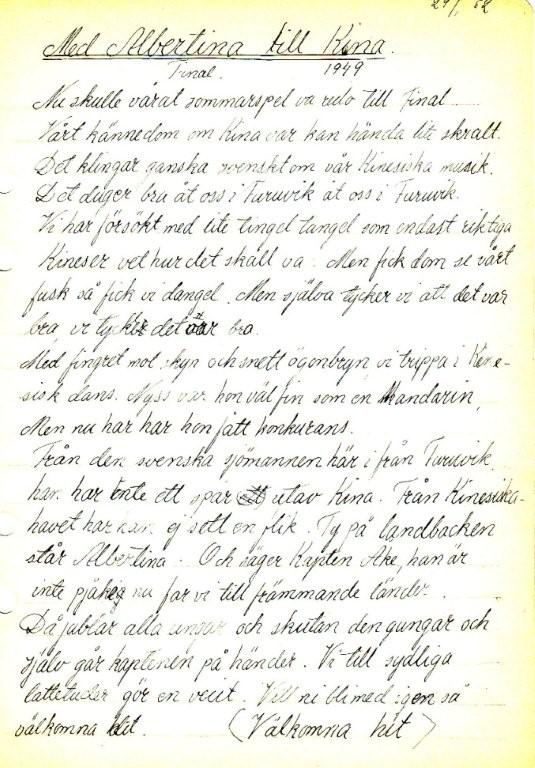 29/1 52
Med Albertina till Kina.
Final. 1949
Nu skulle vårat sommarspel va redo till Final
Vårt kännedom om Kina var kan hända lite skralt.
Det klingar ganska svenskt om vår Kinesiska musik.
Det duger bra åt oss i Furuvik åt oss i Furuvik.
Vi har försökt med lite tingel tangel som endast riktiga
Kineser vet hur det skall va. Men fick dom se vårt
fusk så fick vi dangel. Men själva tycker vi att det var
bra vi tycker det var bra.
Med fingret mot skyn och snett ögonbryn, vi trippa i Kine-
sisk dans. Nyss var hon väl fin som en Mandarin,
Men nu har har hon fått konkurans.
Från den svenska sjömannen här i från Furuvik
han har inte ett spår utav Kina. Från Kinesiska-
havet har han ej sett en flik. Ty på landbacken
står Albertina. Och säger Kapten Åke, han är
inte pjåkig nu far vi till främmande länder.
Då jublar alla ungar och skutan den gungar och
själv går kaptenen på händer. Vi till sydliga
lattetuder gör en visit. Vill ni bli med igen så
välkomna hit. (Välkomna hit)